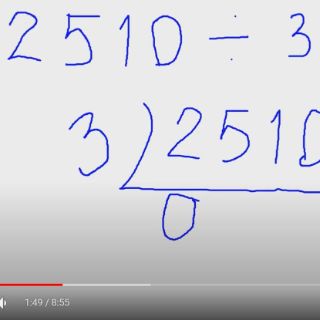 2510 ÷ 3
3 ) 2510
0
1:49 / 8:55